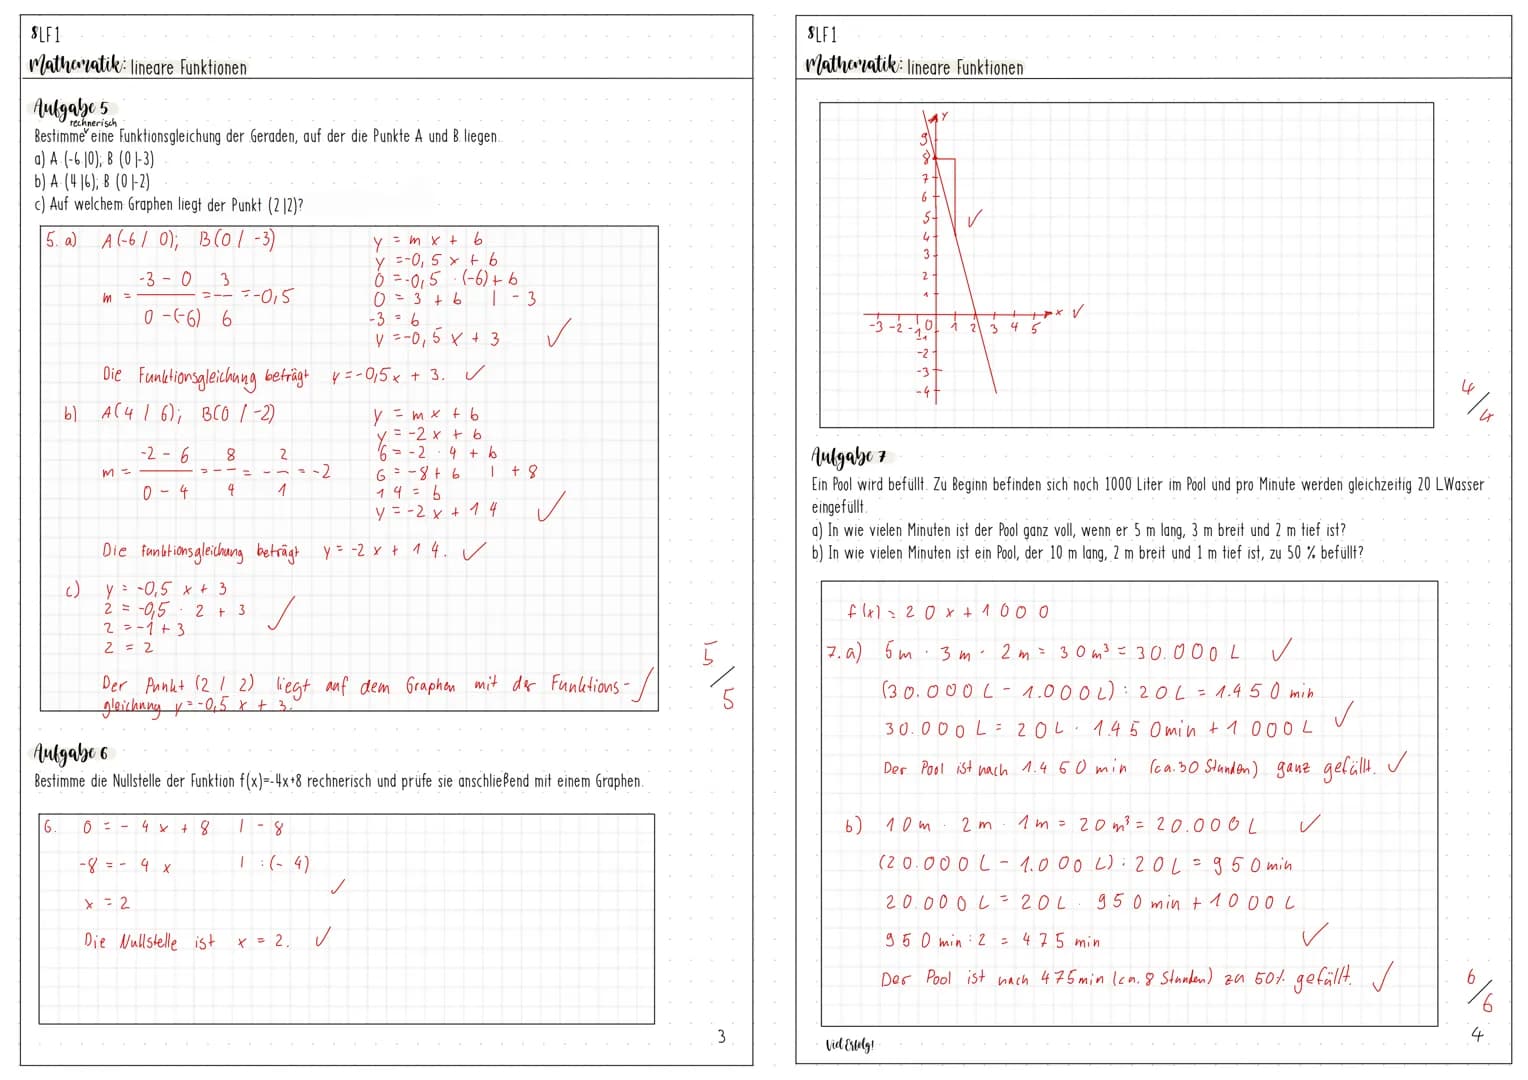 8LF1
Mathematik: lineare Funktionen
Aufgabe 5
rechnerisch
Bestimme eine Funktionsgleichung der Geraden, auf der die Punkte A und B liegen.
a) A (-6|0); B (0|-3)
b) A (4|6); B (0|-2)
c) Auf welchem Graphen liegt der Punkt (2|2)?
5. a) A(-6 / 0); B(0 / -3)
y = m x + b
y = -0,5 x + b
-3 - 0 3
0 = -0,5 · (-6) + b
m = = - = -0,5
0 = 3 + b | - 3
0 - (-6) 6
-3 = b
y = -0,5 x + 3 ✓
Die Funktionsgleichung beträgt y = -0,5x + 3. ✓
b) A(4 / 6); B(0 / -2)
y = m x + b
y = -2 x + b
-2 - 6 8 2
6 = -2 · 4 + b
m = = - = - = -2
6 = -8 + b | + 8
0 - 4 4 1
14 = b
y = -2 x + 14 ✓
Die Funktionsgleichung beträgt y = -2 x + 14. ✓
c) y = -0,5 x + 3
2 = -0,5 · 2 + 3 ✓
2 = -1 + 3
2 = 2
Der Punkt (2 / 2) liegt auf dem Graphen mit der Funktions- ✓
gleichung y = -0,5 x + 3.
5/5
Aufgabe 6
Bestimme die Nullstelle der Funktion f(x)=-4x+8 rechnerisch und prüfe sie anschließend mit einem Graphen.
6. 0 = - 4 x + 8 | - 8
-8 = - 4 x | : (- 4)
✓
x = 2
Die Nullstelle ist x = 2. ✓
3
8LF1
Mathematik: lineare Funktionen
y
9
8
7
6
5 ✓
4
3
2
1
x ✓
-3 -2 -1 0 1 2 3 4 5
-1
-2
-3
-4
4/4
Aufgabe 7
Ein Pool wird befüllt. Zu Beginn befinden sich noch 1000 Liter im Pool und pro Minute werden gleichzeitig 20 L Wasser
eingefüllt.
a) In wie vielen Minuten ist der Pool ganz voll, wenn er 5 m lang, 3 m breit und 2 m tief ist?
b) In wie vielen Minuten ist ein Pool, der 10 m lang, 2 m breit und 1 m tief ist, zu 50 % befüllt?
f(x) = 20 x + 1000
7. a) 5m · 3m · 2m = 30m³ = 30.000 L ✓
(30.000 L - 1.000 L) : 20 L = 1.450 min
30.000 L = 20 L · 1.450min + 1000 L ✓
Der Pool ist nach 1.450 min (ca. 30 Stunden) ganz gefüllt. ✓
b) 10m · 2m · 1m = 20m³ = 20.000 L ✓
(20.000 L - 1.000 L) : 20 L = 950 min
20.000 L = 20 L · 950 min + 1000 L
950 min : 2 = 475 min ✓
Der Pool ist nach 475min (ca. 8 Stunden) zu 50% gefüllt. ✓
6/6
Viel Erfolg!
4